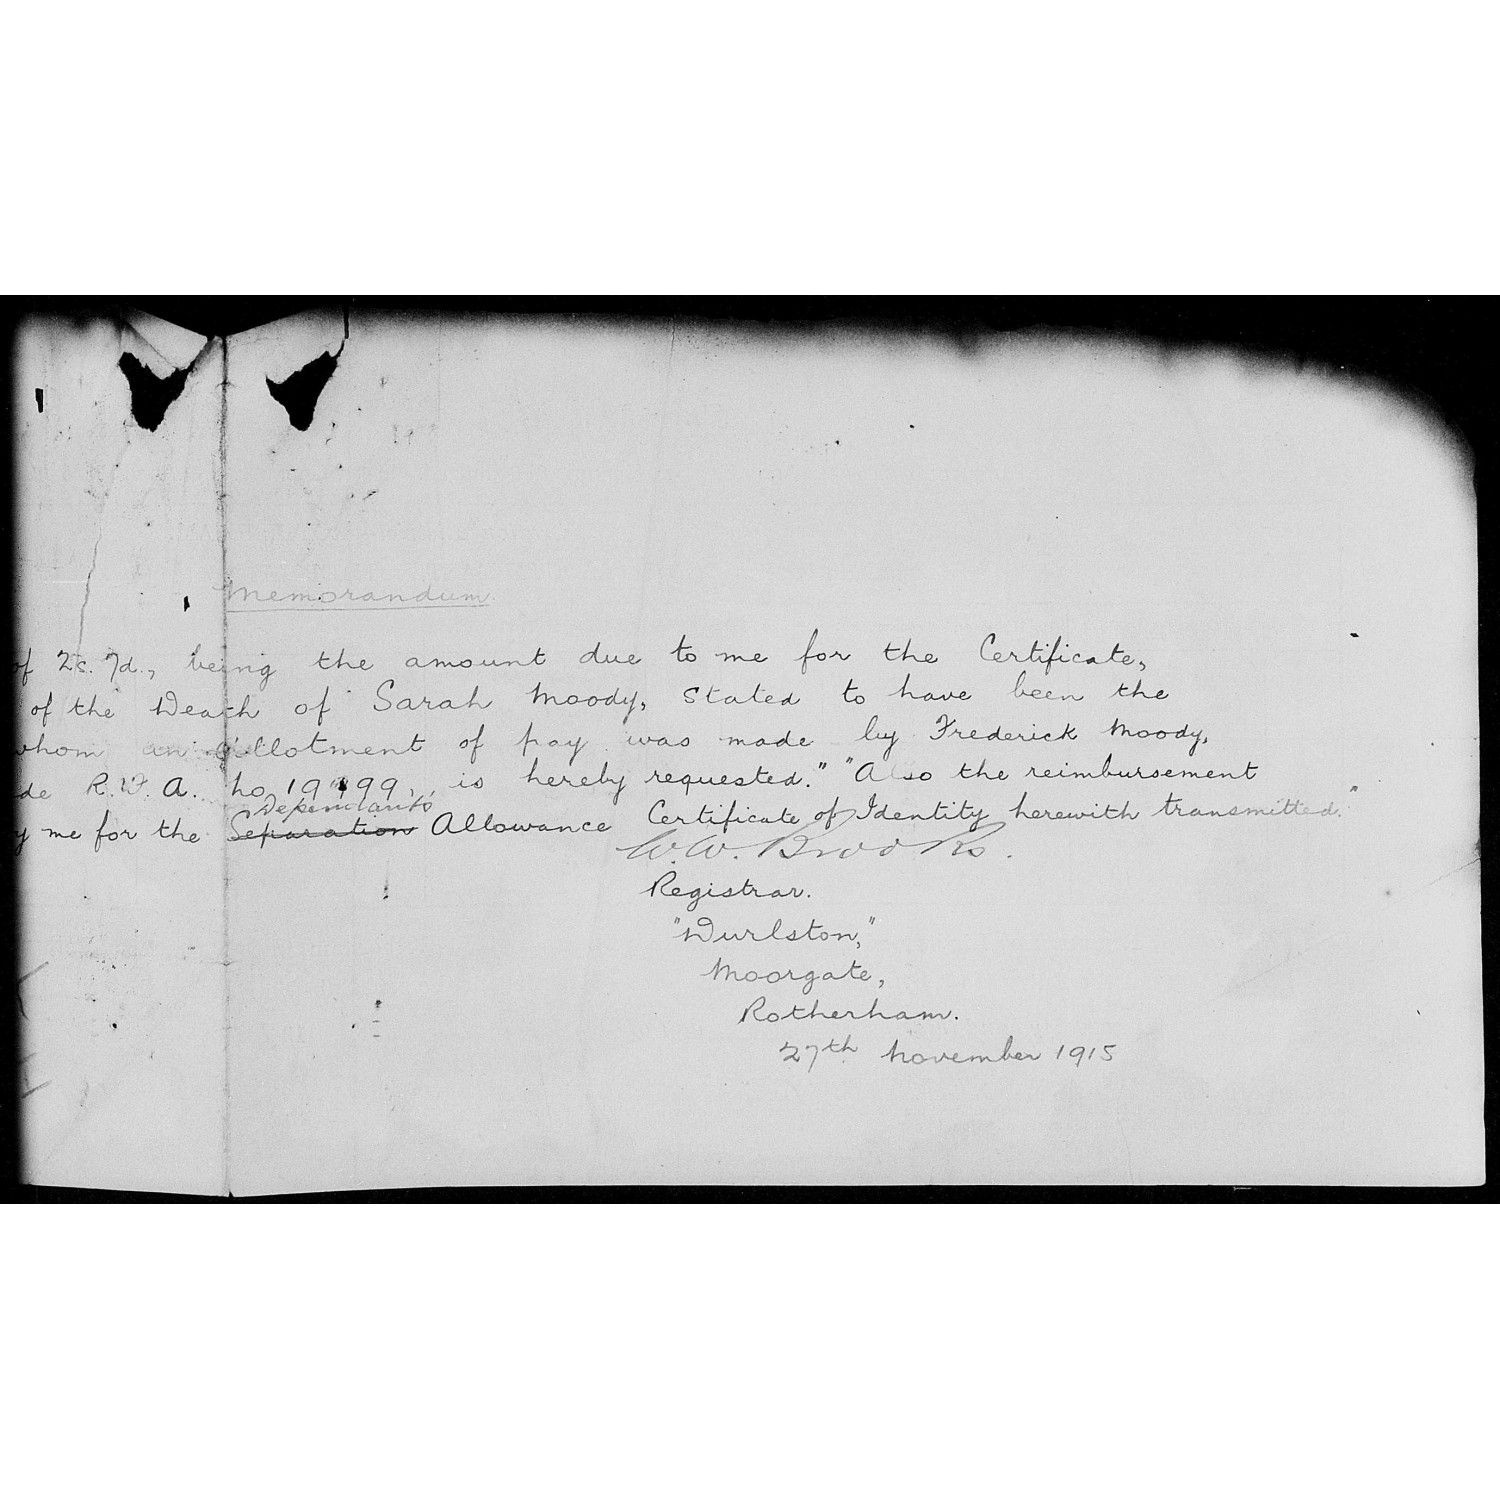 Memorandum
of 2s. 7d., being the amount due to me for the Certificate,
of the Death of Sarah Moody, stated to have been the
whom an allotment of pay was made by Frederick Moody,
de R.F.A. No 19999, is hereby requested." "Also the reimbursement
Dependants
y me for the Separation Allowance Certificate of Identity herewith transmitted."
W. W. Brooks.
Registrar.
"Durlston,"
Moorgate,
Rotherham.
27th November 1915